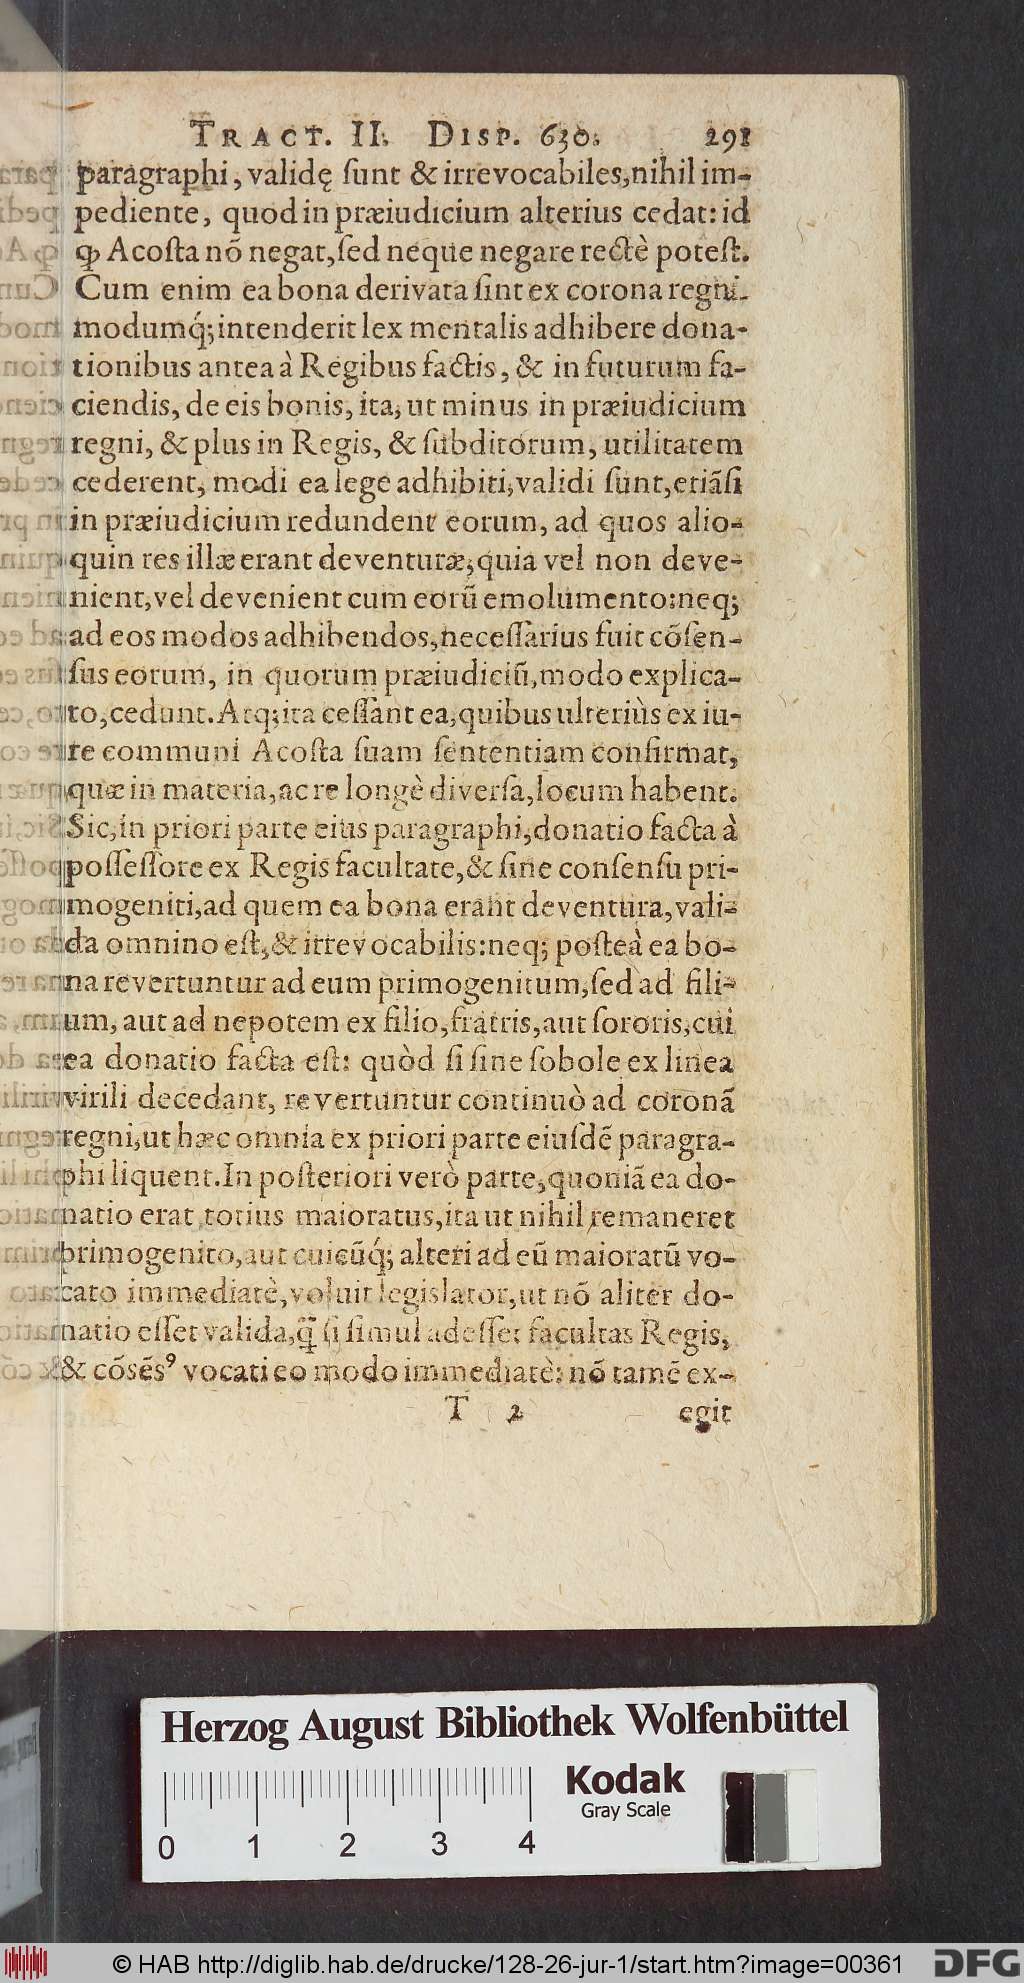 TRACT. II. DISP. 630. 291
paragraphi, validę ſunt & irrevocabiles, nihil im-
pediente, quod in præiudicium alterius cedat: id
ꝙ Acoſta nõ negat, ſed neque negare rectè poteſt.
Cum enim ea bona derivata ſint ex corona regni.
modumq́; intenderit lex mentalis adhibere dona-
tionibus antea à Regibus factis, & in futurum fa-
ciendis, de eis bonis, ita, ut minus in præiudicium
regni, & plus in Regis, & ſubditorum, utilitatem
cederent, modi ea lege adhibiti, validi ſunt, etiãſi
in præiudicium redundent eorum, ad quos alio-
quin res illæ erant deventuræ, quia vel non deve-
nient, vel devenient cum eorũ emolumento: neq;
ad eos modos adhibendos, neceſſarius fuit cõſen-
ſus eorum, in quorum præiudiciũ, modo explica-
to, cedunt. Atq; ita ceſſant ea, quibus ulteriùs ex iu-
re communi Acoſta ſuam ſententiam confirmat,
quæ in materia, ac re longè diverſa, locum habent.
Sic, in priori parte eius paragraphi, donatio facta à
poſſeſſore ex Regis facultate, & ſine conſenſu pri-
mogeniti, ad quem ea bona erant deventura, vali-
da omnino eſt, & irrevocabilis: neq; poſteà ea bo-
na revertuntur ad eum primogenitum, ſed ad fili-
um, aut ad nepotem ex filio, fratris, aut ſororis, cui
ea donatio facta eſt: quòd ſi ſine ſobole ex linea
virili decedant, revertuntur continuò ad coronã
regni, ut hæc omnia ex priori parte eiuſdẽ paragra-
phi liquent. In poſteriori verò parte, quoniã ea do-
natio erat totius maioratus, ita ut nihil remaneret
primogenito, aut cuicũq́; alteri ad eũ maioratũ vo-
cato immediatè, voluit legislator, ut nõ aliter do-
natio eſſet valida, q̃ ſi ſimul adeſſet facultas Regis,
& cõſẽsꝰ vocati eo modo immediatè: nõ tamẽ ex-
T 2 egit
Herzog August Bibliothek Wolfenbüttel
Kodak
Gray Scale
0 1 2 3 4
© HAB http://diglib.hab.de/drucke/128-26-jur-1/start.htm?image=00361
DFG